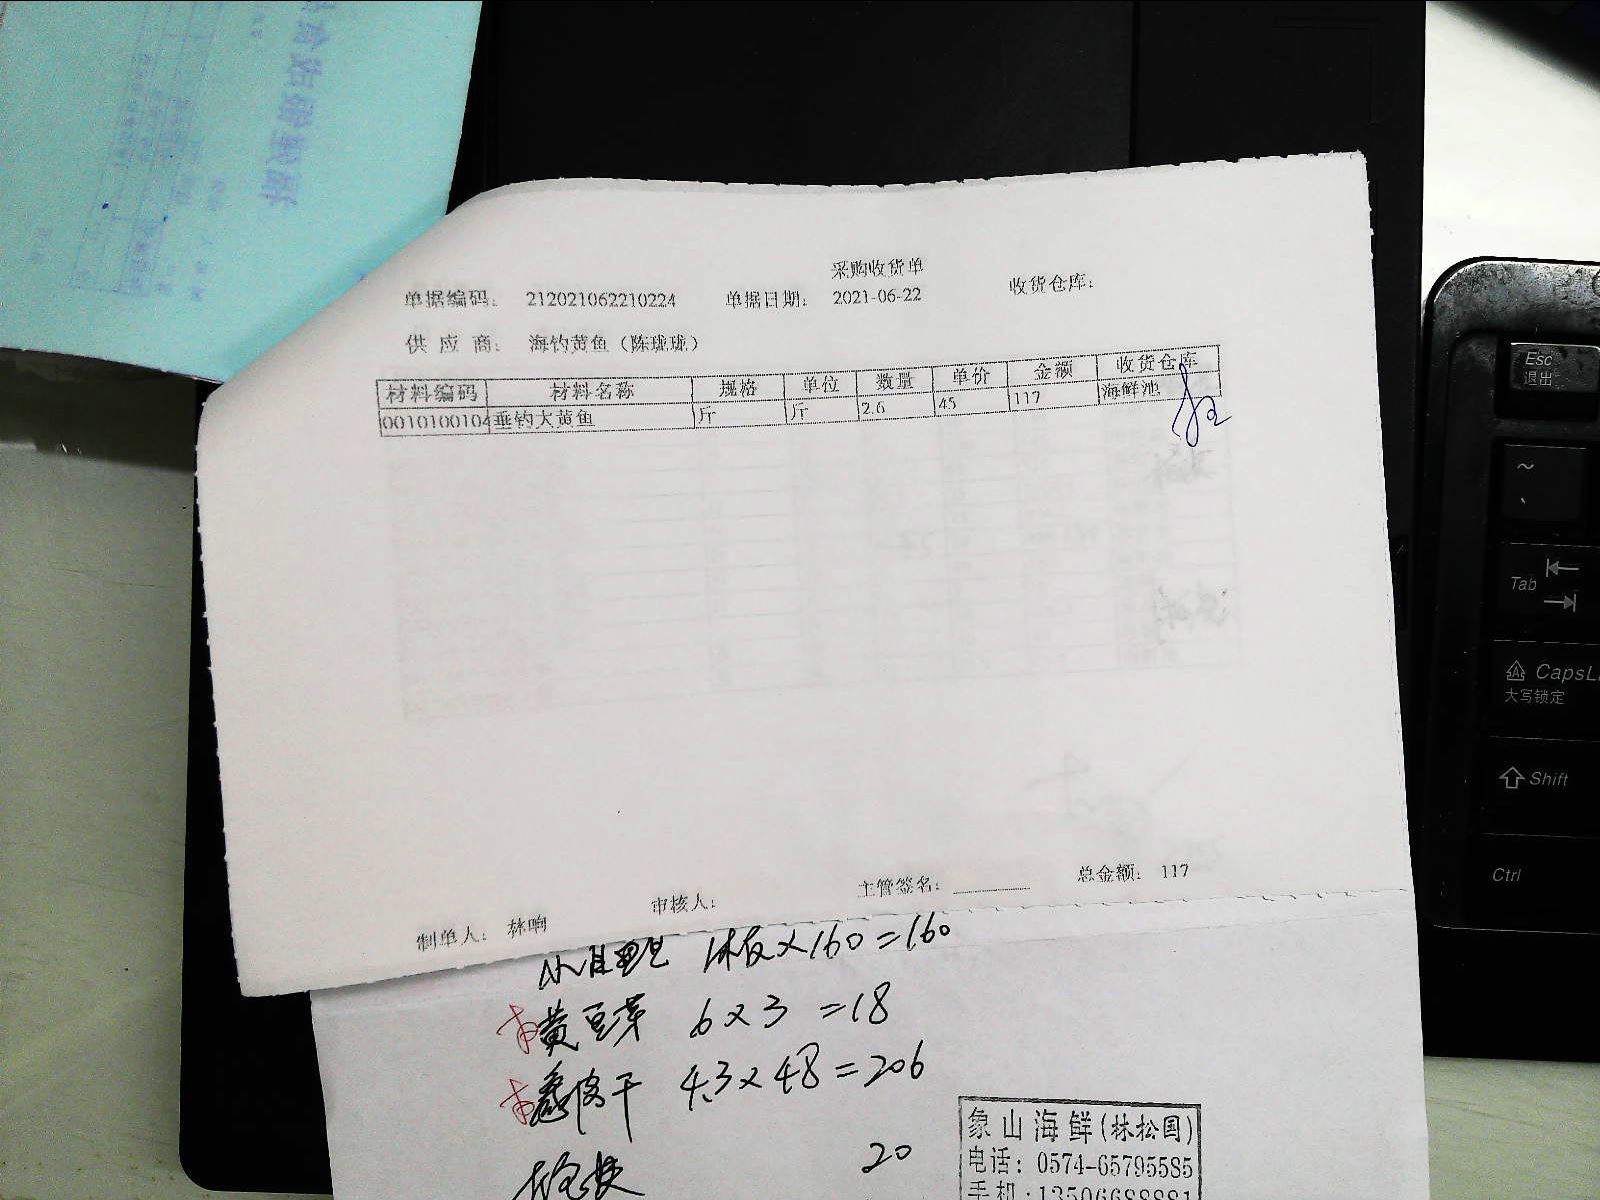 采购收货单
单据编码： 212021062210224 单据日期： 2021-06-22 收货仓库：
供 应 商： 海钓黄鱼（陈珑珑）
材料编码 材料名称 规格 单位 数量 单价 金额 收货仓库
0010100104 垂钓大黄鱼 斤 斤 2.6 45 117 海鲜池
制单人： 林响 审核人： 主管签名： 总金额： 117
160 = 160
黄豆芽 6×3 =18
4.3×48=206
20
象山海鲜(林松国)
电话: 0574-65795585
手机:13506688881
Esc
退出
~
Tab
CapsL
大写锁定
Shift
Ctrl